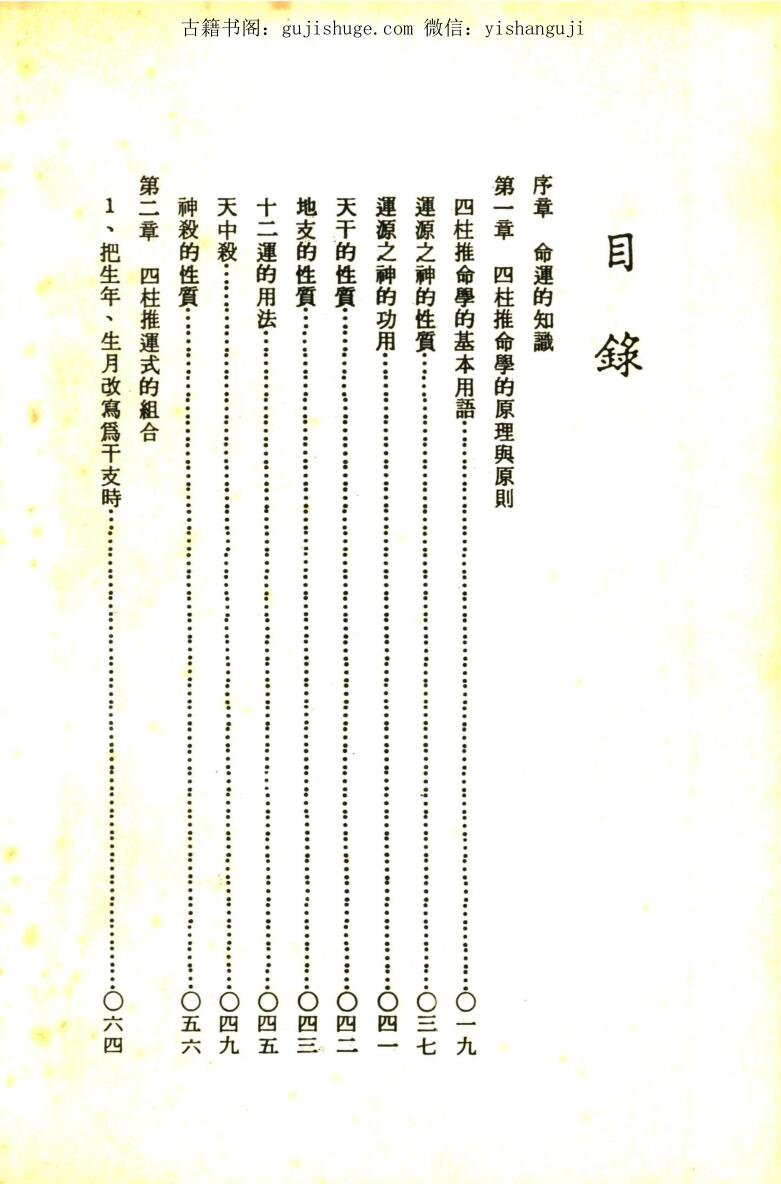 古籍书阁：gujishuge.com 微信：yishanguji
目錄
序章　命運的知識
第一章　四柱推命學的原理與原則
四柱推命學的基本用語……〇一九
運源之神的性質……〇三七
運源之神的功用……〇四一
天干的性質……〇四二
地支的性質……〇四三
十二運的用法……〇四五
天中殺……〇四九
神殺的性質……〇五六
第二章　四柱推運式的組合
1、把生年、生月改寫爲干支時……〇六四